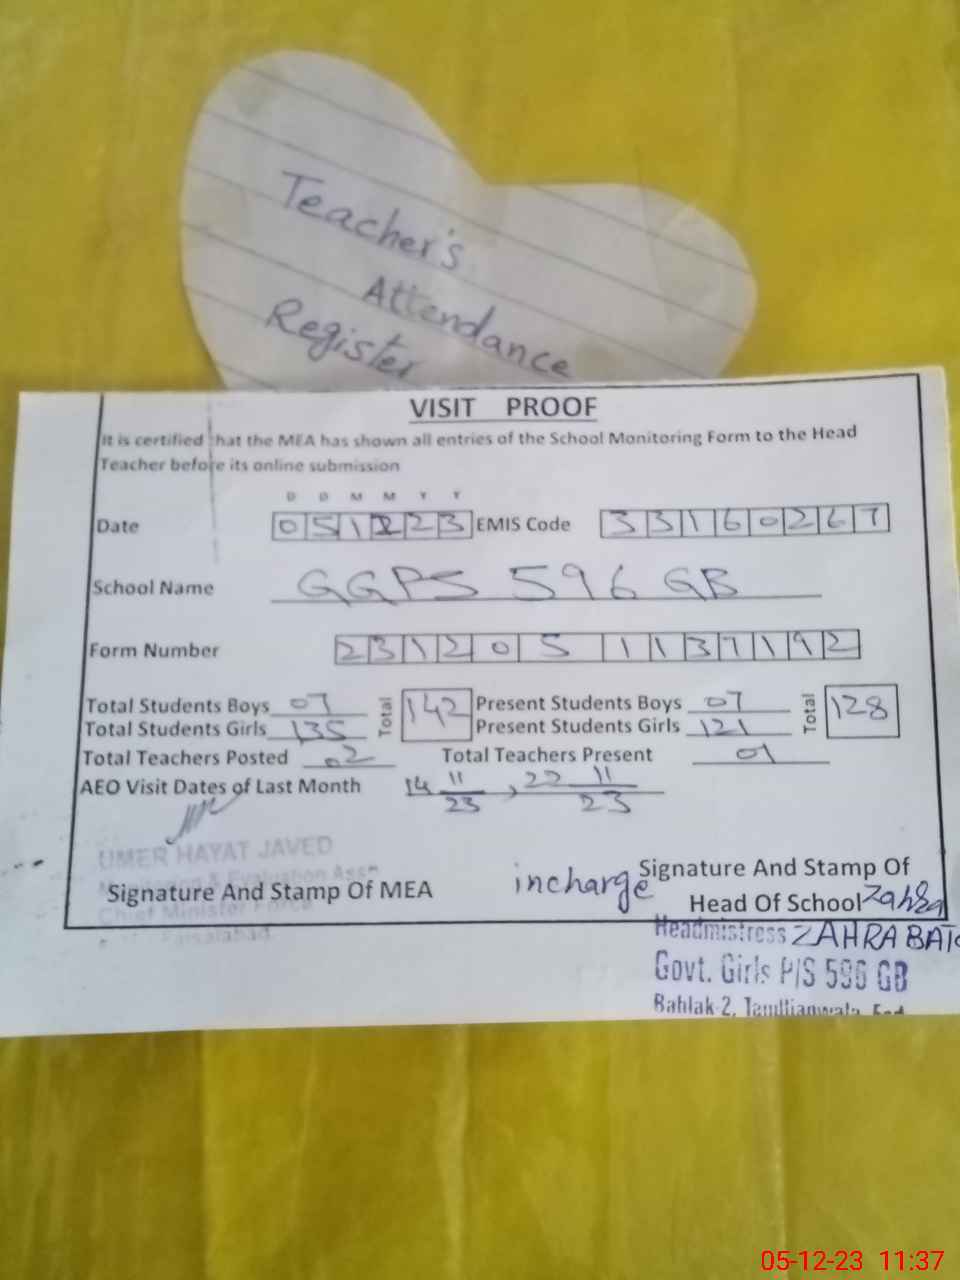 Teacher's
Attendance
Register
VISIT PROOF
It is certified that the MEA has shown all entries of the School Monitoring Form to the Head
Teacher before its online submission
D D M M Y Y
Date 051223 EMIS Code 33160267
School Name GGPS 596 GB
Form Number 231205 1137192
Total Students Boys 07 Total 142 Present Students Boys 07 Total 128
Total Students Girls 135 Present Students Girls 121
Total Teachers Posted 02 Total Teachers Present 01
AEO Visit Dates of Last Month 14 11/23, 22 11/23
UMER HAYAT JAVED
Monitoring & Evaluation Ass
Signature And Stamp Of MEA
Chief Minister Force
Faisalabad
incharge Signature And Stamp Of
Head Of School Zahra
Headmistress ZAHRA BATO
Govt. Girls P/S 596 GB
Bahlak-2, Tandlianwala, Fsd
05-12-23 11:37